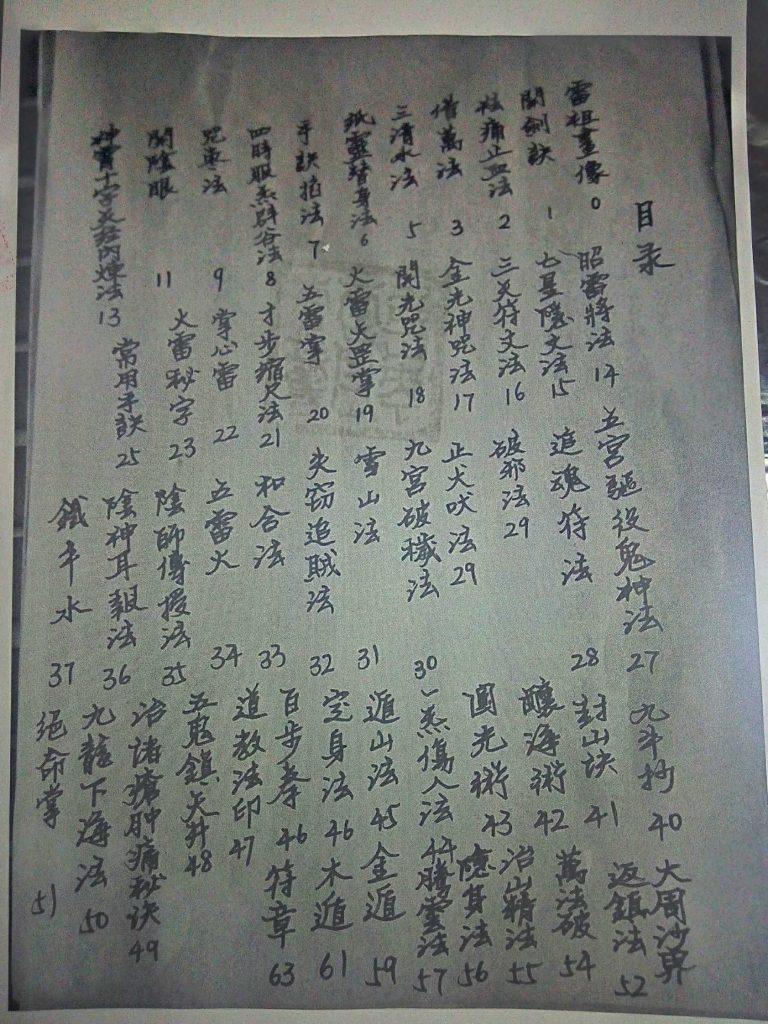 目录
雷祖畫像 0
開劍訣 1
祛痛止血法 2
借萬法 3
三清水法 5
紙靈替身法 6
手訣掐法 7
四時服炁辟谷法 8
咒棗法 9
開陰眼 11
神霄十字天經內煉法 13
昭雷將法 14
七星隱文法 15
三炁符文法 16
金光神咒法 17
開光咒法 18
火雷火罡掌 19
五雷掌 20
才步縮尺法 21
掌心雷 22
火雷秘字 23
常用手訣 25
五宮驅役鬼神法 27
追魂符法 28
破邪法 29
止犬吠法 29
九宮破穢法 30
雪山法 31
失窃追賊法 32
和合法 33
五雷火 34
陰師傳授法 35
陰神耳報法 36
鐵牛水 37
九牛抄 40
封山訣 41
釀海術 42
圓光術 43
一炁傷人法 44
遁山法 45
定身法 46
百步拳 46
道教法印 47
五鬼鎮天井 48
治諸瘡肿痛秘诀 49
九龍下海法 50
絕命掌 51
大周沙界
返鎮法 52
萬法破 54
治山精法 55
隱身法 56
騰雲法 57
金遁 59
木遁 61
符章 63